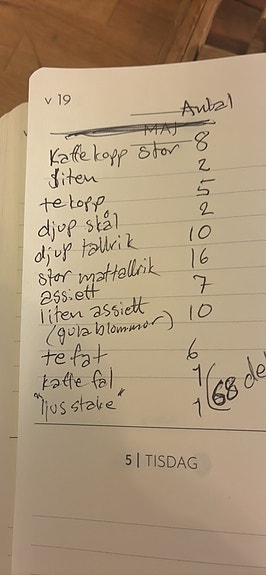 v 19
Antal
MAJ
Kaffekopp stor 8
liten 2
tekopp 5
djup skål 2
djup tallrik 10
stor mattallrik 16
assiett 7
liten assiett 10
(gula blommor)
tefat 6
kaffe fat 1
"ljusstake" 1
(68 de
5 | TISDAG